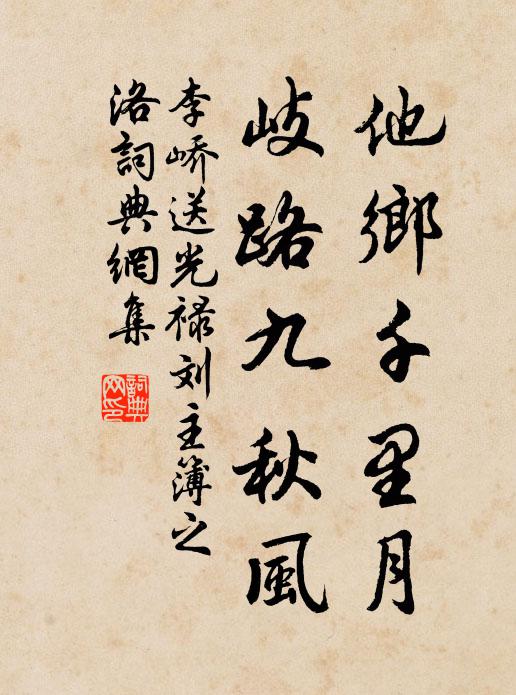 他鄉千里月
岐路九秋風
李嶠送光禄刘主簿之
洛詞典網集
詞典
网印